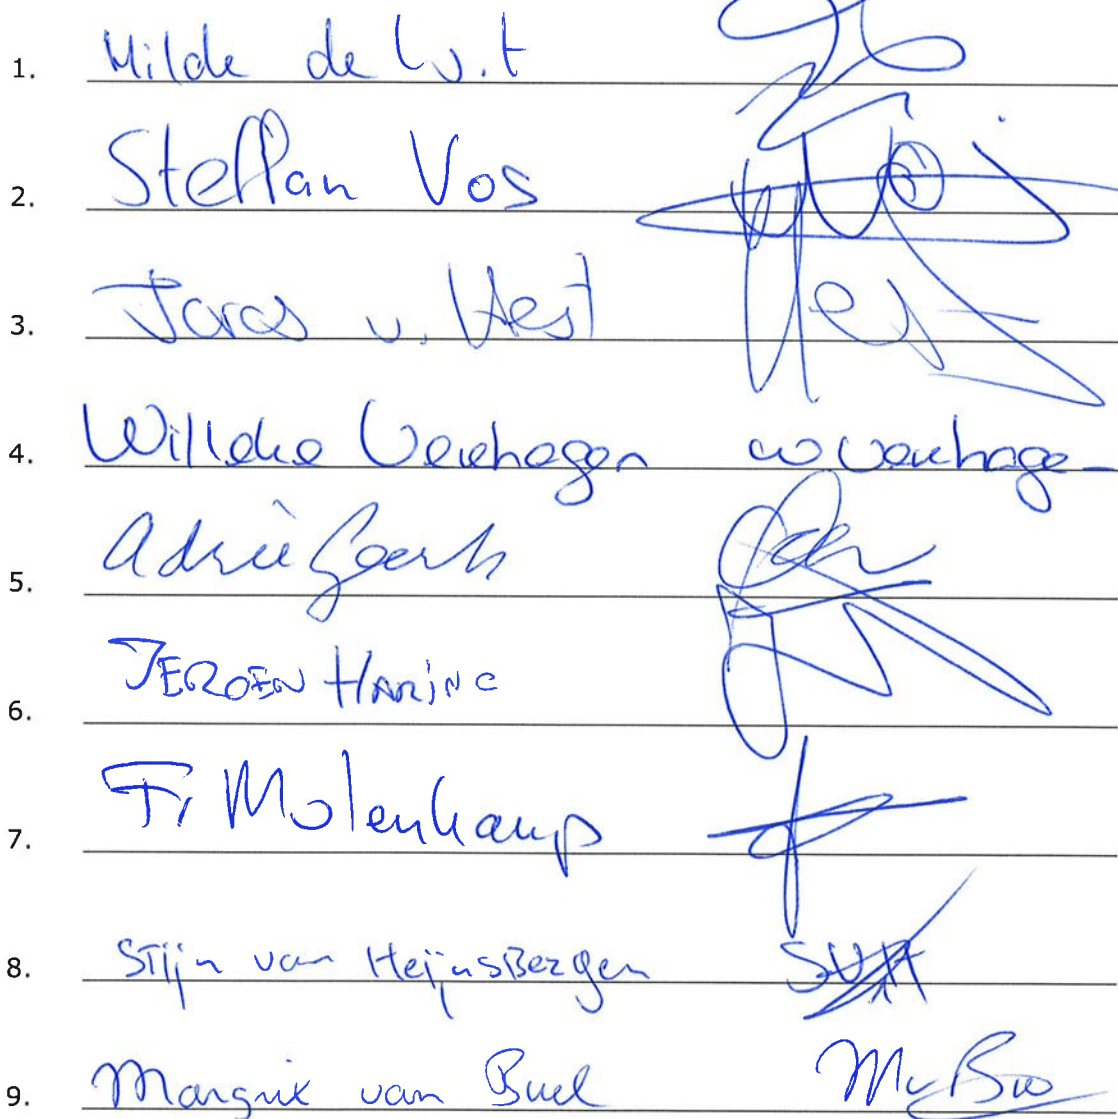 1. Hilde de Wit
2. Steffan Vos
3. Joras v. Hest
4. Willeke Verhagen W Verhagen
5. Adrië
6. JEROEN HARING
7. F. Molenkamp
8. Stijn van HeijnsBergen SvH
9. Margriet van Buel MvBu